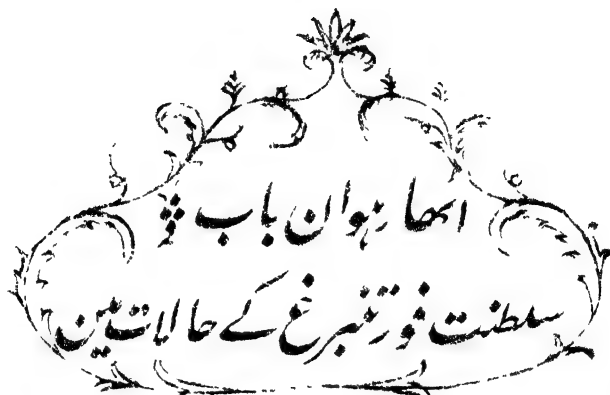 اٹھارہوان باب
سلطنت فورتنبرغ کے حالات مین